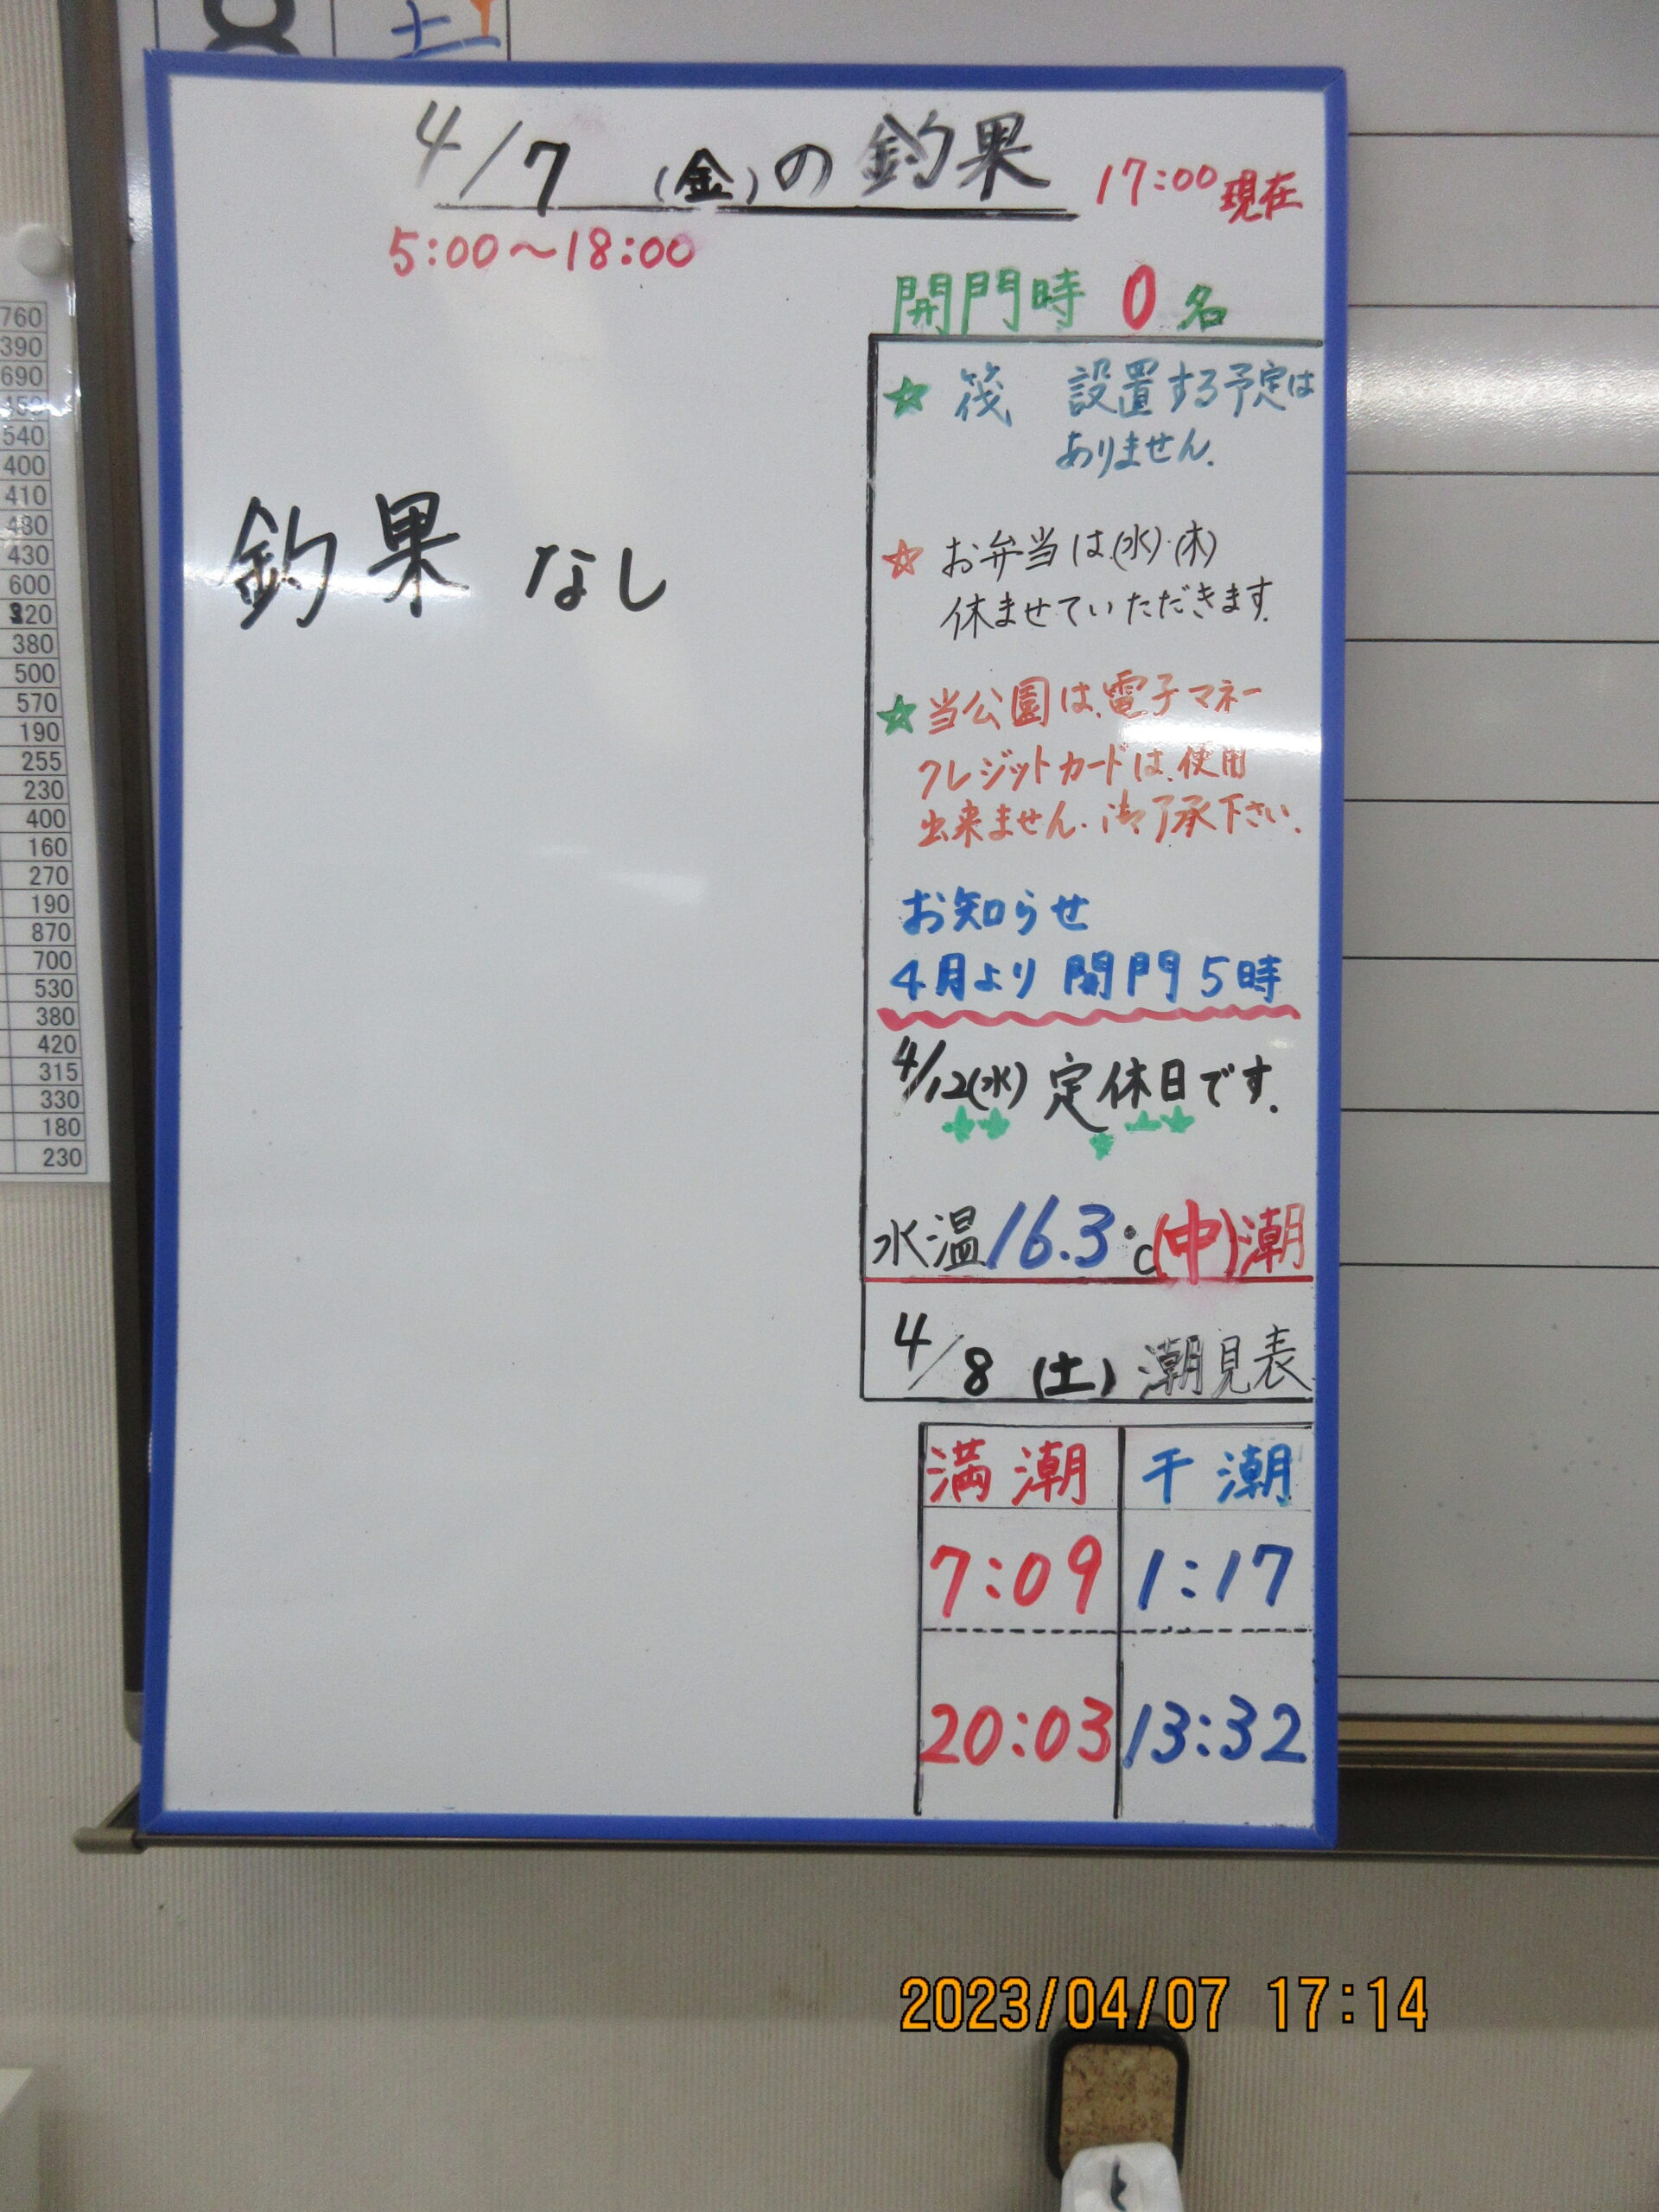 土
4/7 (金)の釣果 17:00現在
5:00〜18:00
開門時 0名
☆ 筏 設置する予定は
ありません.
釣果 なし
☆ お弁当は(水)・(木)
休ませていただきます.
☆当公園は、電子マネー
クレジットカードは、使用
出来ません.御了承下さい.
お知らせ
4月より 開門5時
4/12(水) 定休日です.
水温16.3℃(中)潮
4/8 (土) 潮見表
満潮 干潮
7:09 1:17
20:03 13:32
760
390
690
450
540
400
410
480
430
600
320
380
500
570
190
255
230
400
160
270
190
870
700
530
380
420
315
330
180
230
2023/04/07 17:14
と